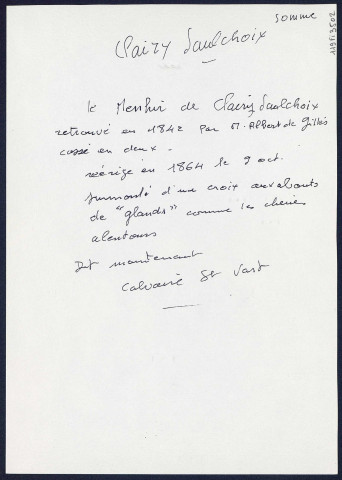 Somme
119Fi3502
Clairy Saulchoix
le Menhir de Clairy Saulchoix
retrouvé en 1842 par M. Albert de Gillès
cassé en deux.
réérigé en 1864 le 9 oct.
surmonté d'une croix aux abouts
de "glands" comme les chênes
alentours
Dit maintenant
Calvaire St Vast